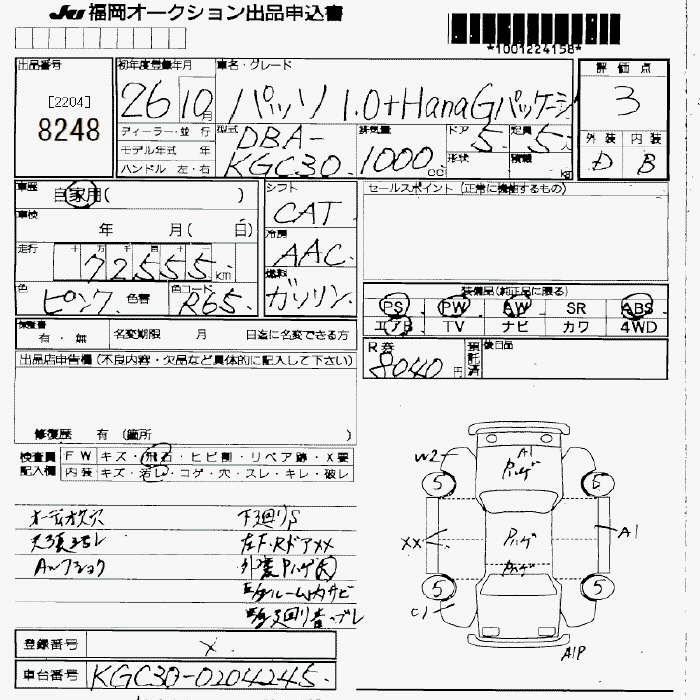 JU 福岡オークション出品申込書
*1001224158*
出品番号
[2204]
8248
初年度登録年月
26 10月
車名・グレード
パッソ 1.0+HanaGパッケージ
評価点
3
外装 内装
D B
ディーラー・並 行
モデル年式 年
ハンドル 左・右
型式
DBA-
KGC30
排気量
1000 cc
ドア 5
定員 5
形状
積載 kg
車歴
自家用( )
車検
年 月( 日)
走行
十 万 千 百 十 一
72555 km
色
ピンク
色替
色コード
R65
シフト
CAT
冷房
AAC
燃料
ガソリン
セールスポイント (正常に機能するもの)
装備品(純正品に限る)
PS PW AW SR ABS
エアB TV ナビ カワ 4WD
保証書
有・無
名変期限 月 日迄に名変できる方
R券
8040円
預託済
後日品
出品店申告欄 (不良内容・欠品など具体的に記入して下さい)
修復歴 有 (箇所 )
検査員記入欄
FW キズ・飛石・ヒビ割・リペア跡・X要
内装 キズ・汚レ・コゲ・穴・スレ・キレ・破レ
オーディオ欠穴
天張汚レ
下廻りS
左F・RドアXX
W2
A1
5
5
XX
A1
5
5
C1
A1P
登録番号
X
車台番号
KGC30-0204245